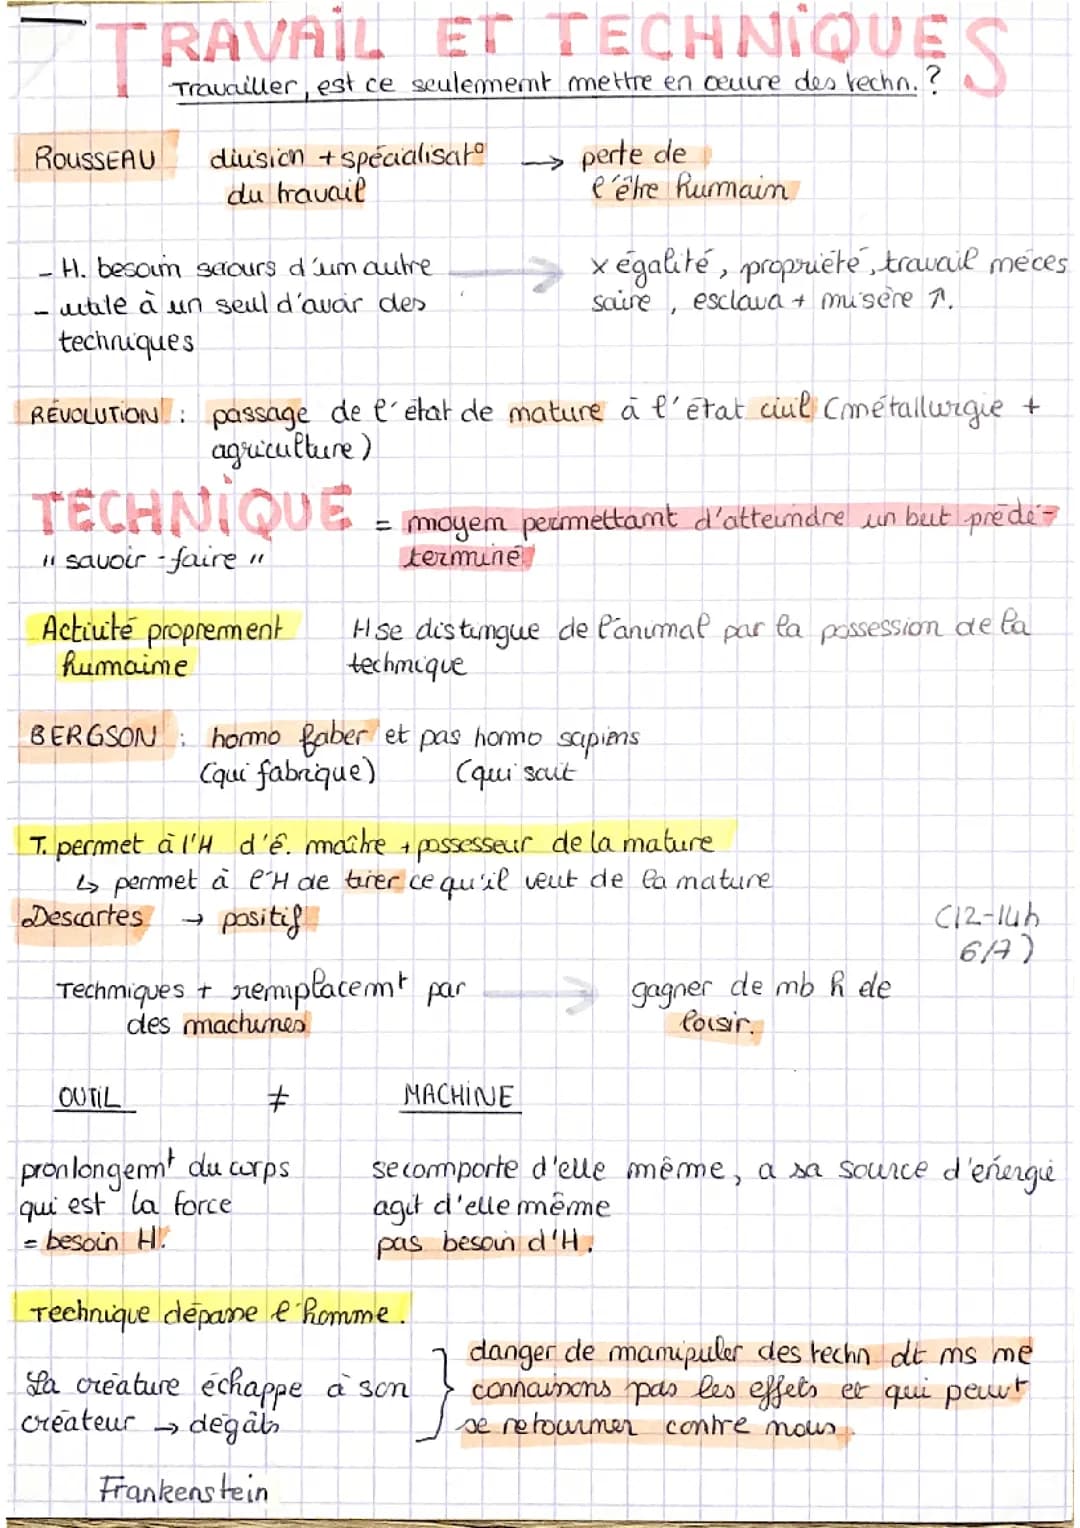 TRAVAIL ET TECHNIQUES
Travailler, est ce seulement mettre en œuvre des techn. ?
ROUSSEAU division + spécialisat° → perte de
du travail l'être humain
- H. besoin secours d'un autre → x égalité, propriété, travail néces
- utile à un seul d'avoir des saire, esclava + misère ↑.
techniques
RÉVOLUTION : passage de l'état de nature à l'état civil (métallurgie +
agriculture)
TECHNIQUE = moyen permettant d'atteindre un but prédé-
" savoir-faire " terminé
Activité proprement H se distingue de l'animal par la possession de la
humaine technique
BERGSON : homo faber et pas homo sapiens
(qui fabrique) (qui sait
T. permet à l'H d'ê. maître + possesseur de la nature
↳ permet à l'H de tirer ce qu'il veut de la nature
Descartes → positif (12-14h
6/7)
Techniques + remplacemt par → gagner de nb h de
des machines loisir.
OUTIL ≠ MACHINE
pronlongemt du corps se comporte d'elle même, a sa source d'énergie
qui est la force agit d'elle même
= besoin H. pas besoin d'H.
Technique dépasse l'homme.
danger de manipuler des techn dt ns ne
La créature échappe à son } connaissons pas les effets et qui peuvt
créateur → dégâts se retourner contre nous.
Frankenstein